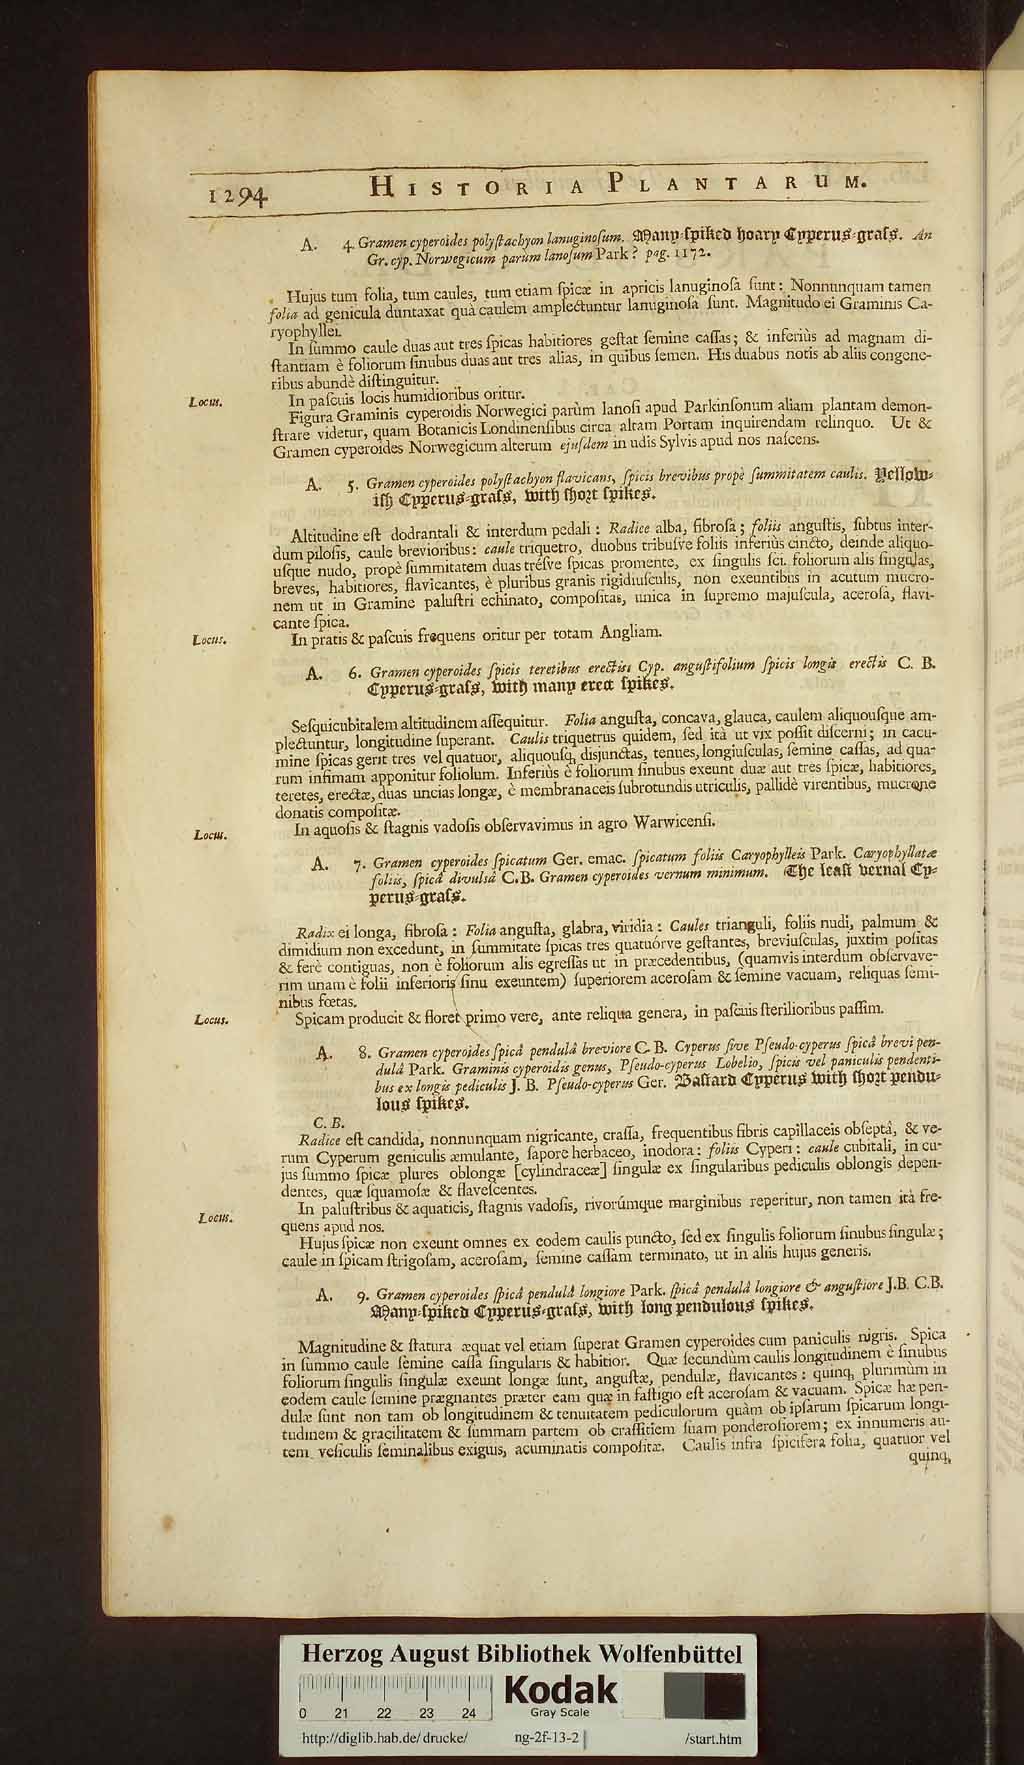 1294 HISTORIA PLANTARUM.
A. 4. Gramen cyperoides polyſtachyon lanuginoſum. Many-ſpiked hoary Cyperus-graſs. An
Gr. cyp. Norwegicum parùm lanoſum Park? pag. 1172.
Hujus tum folia, tum caules, tum etiam ſpicæ in apricis lanuginoſâ ſunt: Nonnunquam tamen
folia ad genicula duntaxat quà caulem amplectuntur lanuginoſa ſunt. Magnitudo ei Graminis Ca-
ryophyllei.
In ſummo caule duas aut tres ſpicas habitiores geſtat ſemine caſſas; & inferiùs ad magnam di-
ſtantiam è foliorum ſinubus duas aut tres alias, in quibus ſemen. His duabus notis ab aliis congene-
ribus abundè diſtinguitur.
Locus. In paſcuis locis humidioribus oritur.
Figura Graminis cyperoidis Norwegici parùm lanoſi apud Parkinſonum aliam plantam demon-
ſtrare videtur, quam Botanicis Londinenſibus circa altam Portam inquirendam relinquo. Ut &
Gramen cyperoides Norwegicum alterum ejuſdem in udis Sylvis apud nos naſcens.
A. 5. Gramen cyperoides polyſtachyon flavicans, ſpicis brevibus propè ſummitatem caulis. Yellow-
iſh Cyperus-graſs, with ſhort ſpikes.
Altitudine eſt dodrantali & interdum pedali: Radice alba, fibroſa; foliis anguſtis, ſubtus inter-
dum piloſis, caule brevioribus: caule triquetro, duobus tribuſve foliis inferiùs cincto, deinde aliquo-
uſque nudo, propè ſummitatem duas treſve ſpicas promente, ex ſingulis ſci. foliorum alis ſingulas,
breves, habitiores, flavicantes, è pluribus granis rigidiuſculis, non exeuntibus in acutum mucro-
nem ut in Gramine paluſtri echinato, compoſitas, unica in ſupremo majuſcula, aceroſa, flavi-
cante ſpica.
Locus. In pratis & paſcuis frequens oritur per totam Angliam.
A. 6. Gramen cyperoides ſpicis teretibus erectis: Cyp. anguſtifolium ſpicis longis erectis C. B.
Cyperus-graſs, with many erect ſpikes.
Seſquicubitalem altitudinem aſſequitur. Folia anguſta, concava, glauca, caulem aliquouſque am-
plectuntur, longitudine ſuperant. Caulis triquetrus quidem, ſed ità ut vix poſſit diſcerni; in cacu-
mine ſpicas gerit tres vel quatuor, aliquouſq, disjunctas, tenues, longiuſculas, ſemine caſſas, ad qua-
rum infimam apponitur foliolum. Inferiùs è foliorum ſinubus exeunt duæ aut tres ſpicæ, habitiores,
teretes, erectæ, duas uncias longæ, è membranaceis ſubrotundis utriculis, pallidè virentibus, mucrone
donatis compoſitæ.
Locus. In aquoſis & ſtagnis vadoſis obſervavimus in agro Warwicenſi.
A. 7. Gramen cyperoides ſpicatum Ger. emac. ſpicatum foliis Caryophylleis Park. Caryophyllatæ
foliis, ſpicâ divulsâ C. B. Gramen cyperoides vernum minimum. The leaſt vernal Cy-
perus-graſs.
Radix ei longa, fibroſa: Folia anguſta, glabra, viridia: Caules trianguli, foliis nudi, palmum &
dimidium non excedunt, in ſummitate ſpicas tres quatuórve geſtantes, breviuſculas, juxtim poſitas
& ferè contiguas, non è foliorum alis egreſſas ut in præcedentibus, (quamvis interdum obſervave-
rim unam è folii inferioris ſinu exeuntem) ſuperiorem aceroſam & ſemine vacuam, reliquas ſemi-
nibus fœtas.
Locus. Spicam producit & floret primo vere, ante reliqua genera, in paſcuis ſterilioribus paſſim.
A. 8. Gramen cyperoides ſpicâ pendulâ breviore C. B. Cyperus ſive Pſeudo-cyperus ſpicâ brevi pen-
dulâ Park. Graminis cyperoidis genus, Pſeudo-cyperus Lobelio, ſpicis vel paniculis pendenti-
bus ex longis pediculis J. B. Pſeudo-cyperus Ger. Baſtard Cyperus with ſhort pendu-
lous ſpikes.
C. B.
Radice eſt candida, nonnunquam nigricante, craſſa, frequentibus fibris capillaceis obſepta, & ve-
rum Cyperum geniculis æmulante, ſapore herbaceo, inodora: foliis Cyperi: caule cubitali, in cu-
jus ſummo ſpicæ plures oblongæ [cylindraceæ] ſingulæ ex ſingularibus pediculis oblongis depen-
dentes, quæ ſquamoſæ & flaveſcentes.
Locus. In paluſtribus & aquaticis, ſtagnis vadoſis, rivorúmque marginibus reperitur, non tamen ità fre-
quens apud nos.
Hujus ſpicæ non exeunt omnes ex eodem caulis puncto, ſed ex ſingulis foliorum ſinubus ſingulæ;
caule in ſpicam ſtrigoſam, aceroſam, ſemine caſſam terminato, ut in aliis hujus generis.
A. 9. Gramen cyperoides ſpicâ pendulâ longiore Park. ſpicâ pendulâ longiore & anguſtiore J. B. C. B.
Many-ſpiked Cyperus-graſs, with long pendulous ſpikes.
Magnitudine & ſtatura æquat vel etiam ſuperat Gramen cyperoides cum paniculis nigris. Spica
in ſummo caule ſemine caſſa ſingularis & habitior. Quæ ſecundùm caulis longitudinem è ſinubus
foliorum ſingulis ſingulæ exeunt longæ ſunt, anguſtæ, pendulæ, flavicantes: quinq, plurimùm in
eodem caule ſemine prægnantes præter eam quæ in faſtigio eſt aceroſam & vacuam. Spicæ hæ pen-
dulæ ſunt non tam ob longitudinem & tenuitatem pediculorum quàm ob ipſarum ſpicarum longi-
tudinem & gracilitatem & ſummam partem ob craſſitiem ſuam ponderoſiorem; ex innumeris au-
tem veſiculis ſeminalibus exiguis, acuminatis compoſitæ. Caulis infra ſpicifera folia, quatuor vel
quinq,
Herzog August Bibliothek Wolfenbüttel
0 21 22 23 24
Kodak
Gray Scale
http://diglib.hab.de/drucke/ ng-2f-13-2 /start.htm